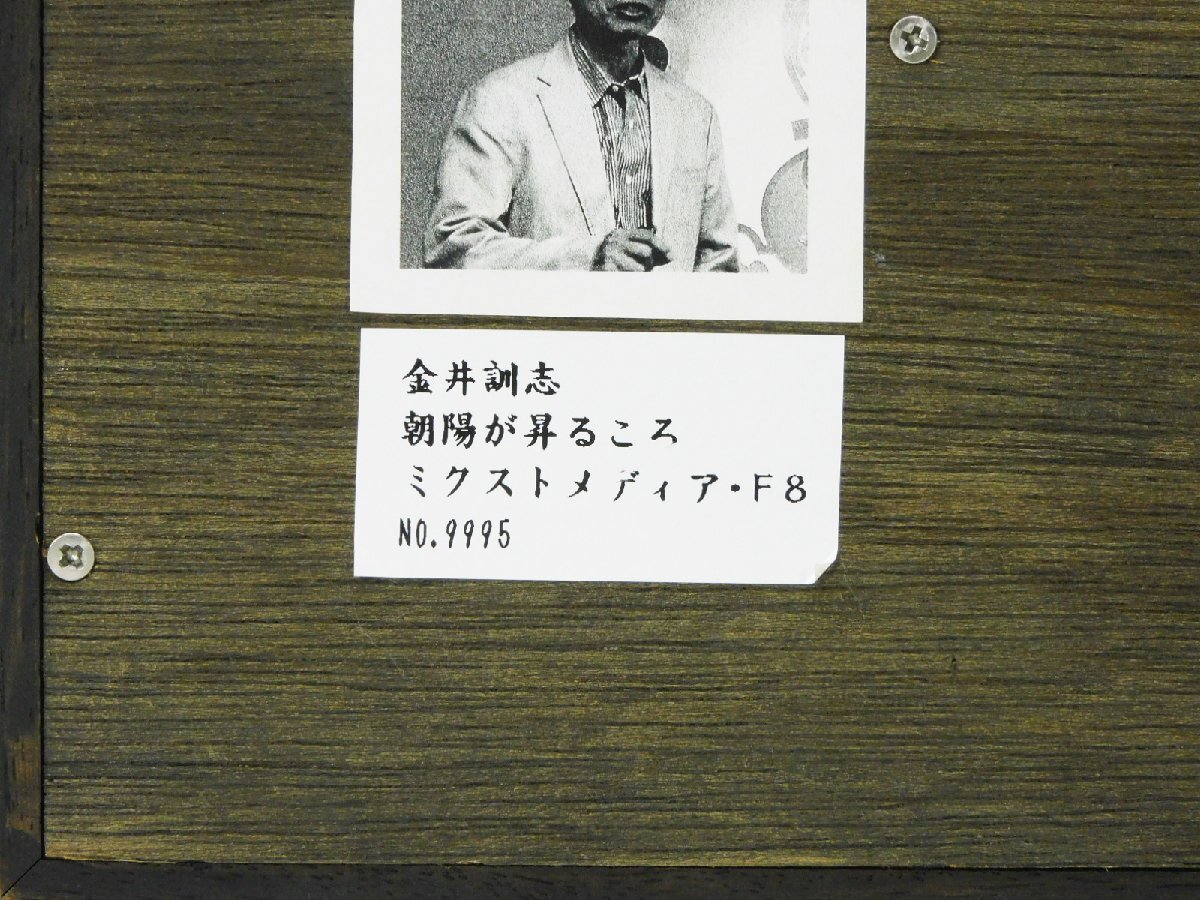 金井訓志
朝陽が昇るころ
ミクストメディア・F8
NO.9995